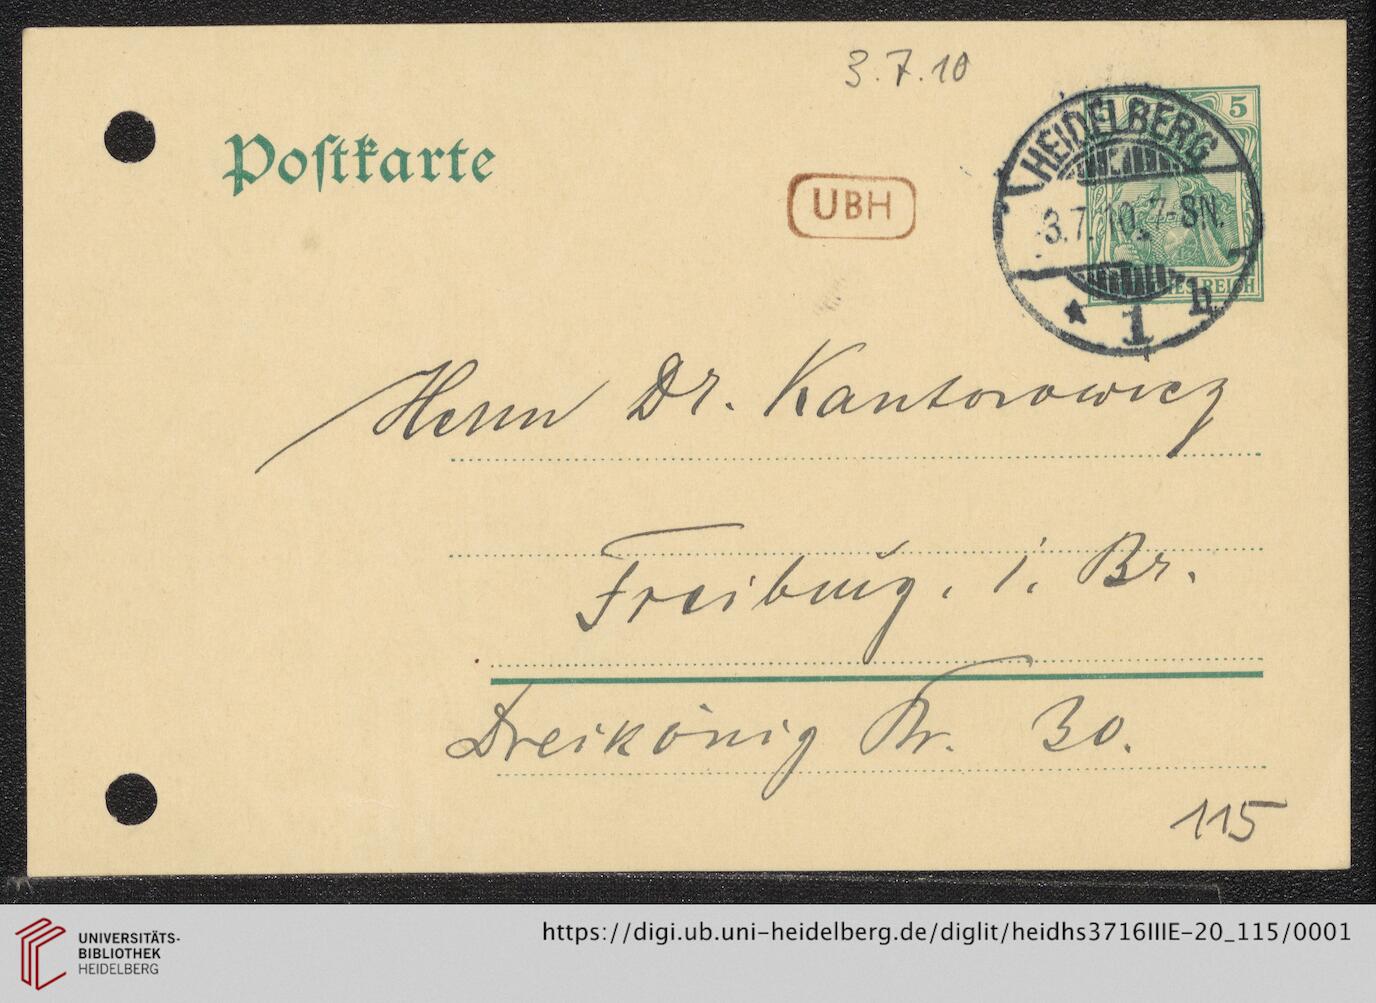 3.7.10
Postkarte
UBH
5
HEIDELBERG
3.7.10.7-8N.
* 1 h
REICH
Herrn Dr. Kantorowicz
Freiburg. i. Br.
Dreikönig Str. 30.
115
UNIVERSITÄTS-
BIBLIOTHEK
HEIDELBERG
https://digi.ub.uni-heidelberg.de/diglit/heidhs3716IIIE-20_115/0001